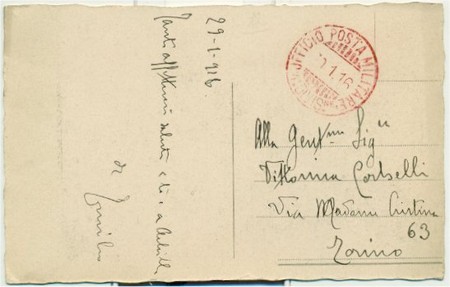 29-1-916
Tanti affettuosi saluti
da
Emilio
UFFICIO POSTA MILITARE
1.16
Alla Gent.ma Sig.na
Vittorina
Via Madama Cristina
63
Torino